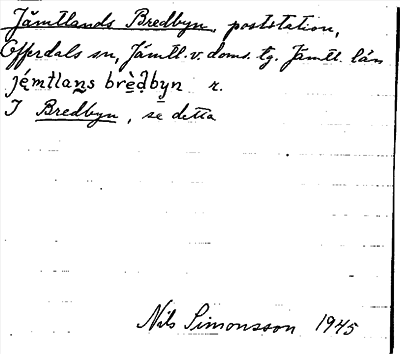 Jämtlands Bredbyn, poststation,
Offerdals sn, Jämtl. v. doms. tg. Jämtl. län
jémtlan̲s brè̲ḍbyn r.
I Bredbyn, se detta
Nils Simonsson 1945